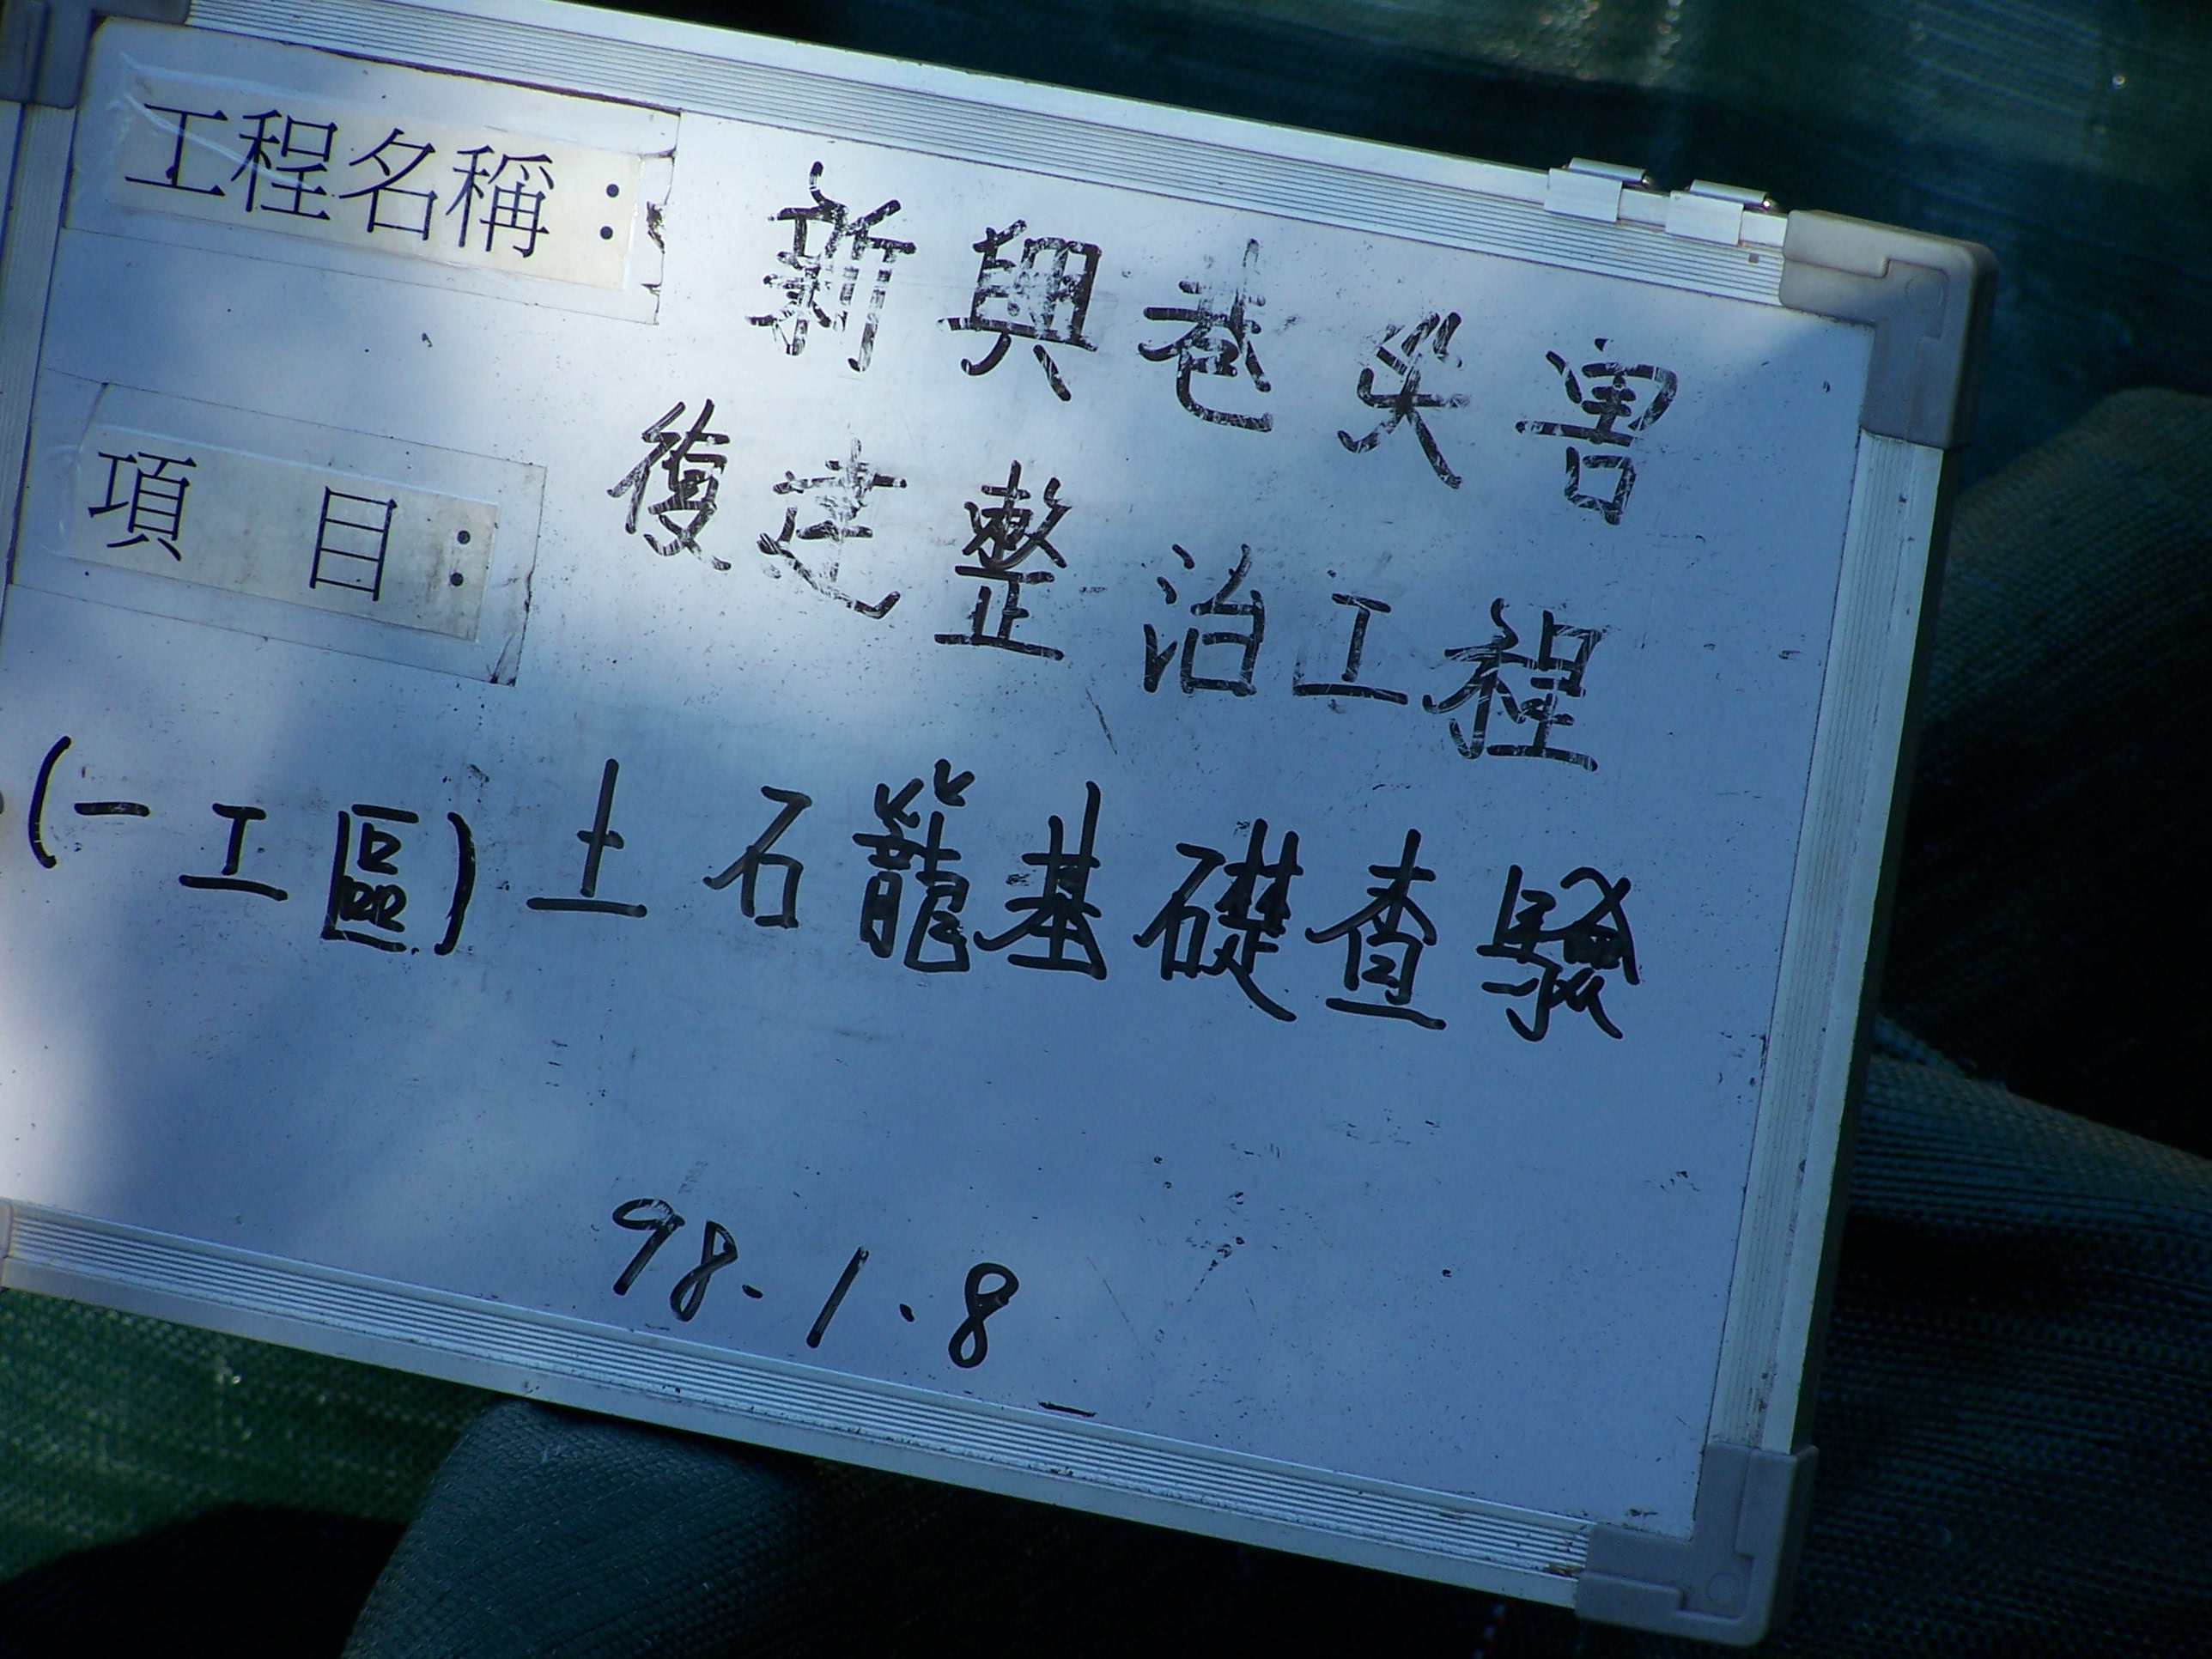 工程名稱：新興巷災害
項目：復建整治工程
(一工區)土石籠基礎查驗
98.1.8